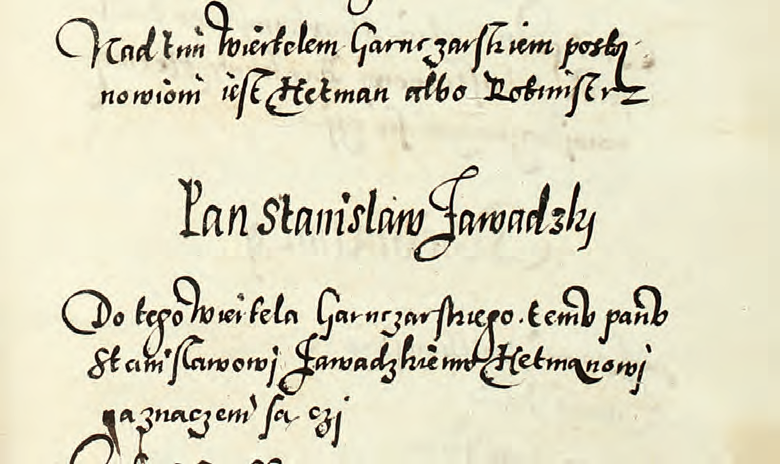 Nad tim Wiertelem Garnczarskiem posta
nowioni iest Hetman albo Rotmistrz
Pan Stanislaw Zawadzkj
Do tego Wiertela Garnczarskiego. temv panv
Stanislawowj Zawadzkiemv Hetmanowj
naznaczeni są czj